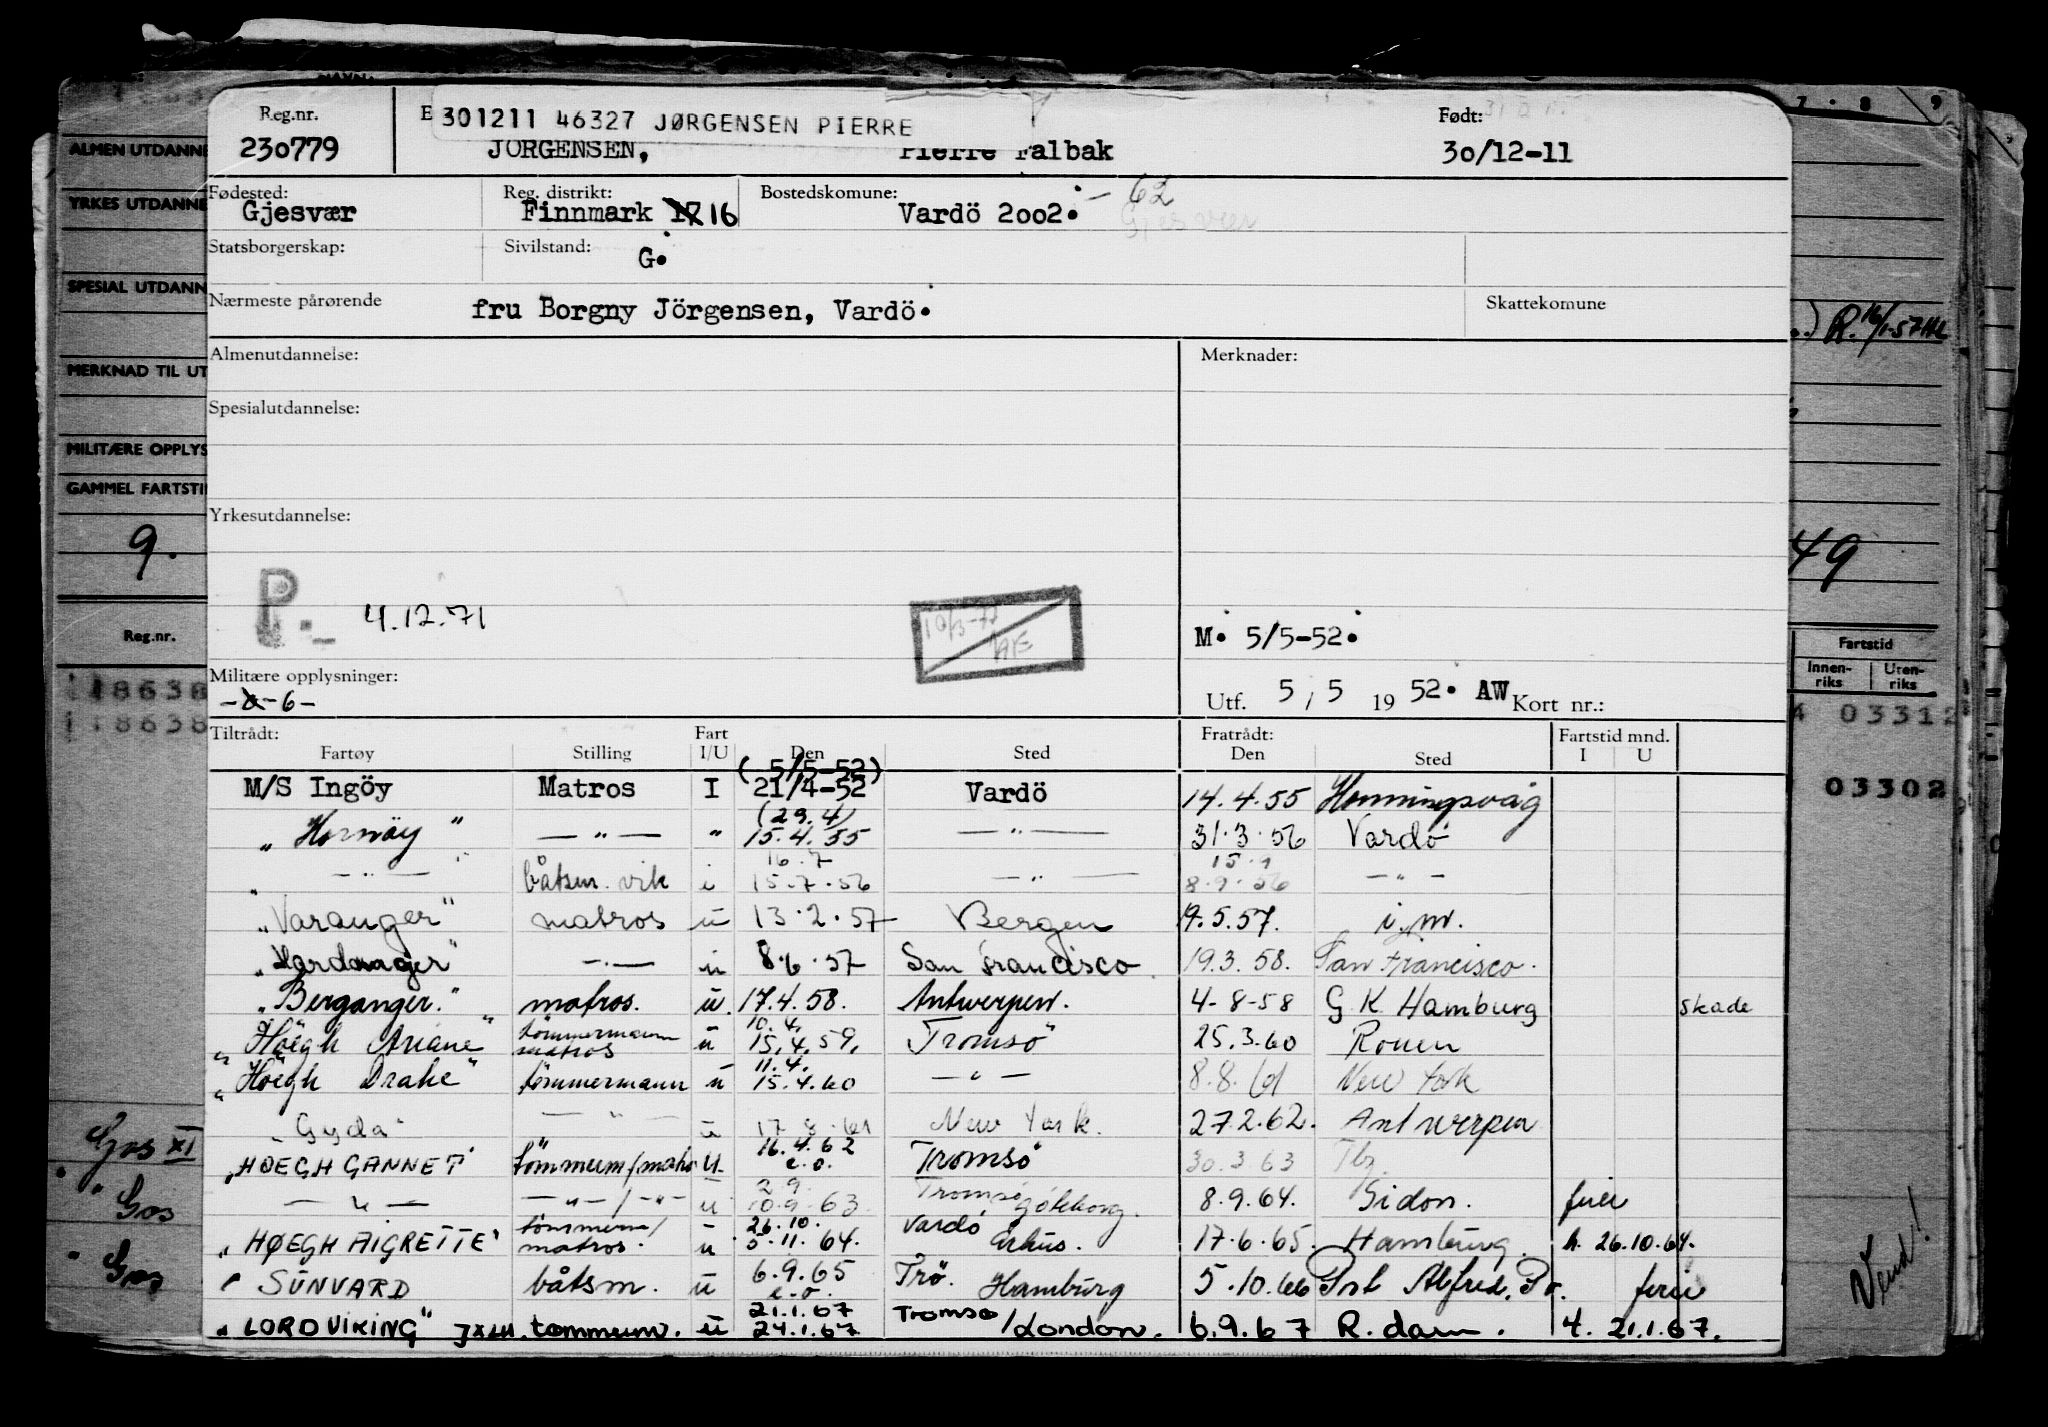 Reg.nr.
301211 46327 JØRGENSEN PIERRE
Født:
230779 JÖRGENSEN, Pierre Falbak 30/12-11
Fødested: Reg. distrikt: Bostedskomune: - 62
Gjesvær Finnmark 17 16 Vardö 2002. Gjesvær
Statsborgerskap: Sivilstand:
G.
Nærmeste pårørende fru Borgny Jörgensen, Vardö. Skattekomune
Almenutdannelse: Merknader:
Spesialutdannelse:
Yrkesutdannelse:
P. 4.12.71
M. 5/5-52.
Militære opplysninger:
-6-
Utf. 5/5 1952. AW Kort nr.:
Tiltrådt: Fart Fratrådt: Fartstid mnd.
Fartøy Stilling I/U Den Sted Den Sted I U
(5/5-52)
M/S Ingöy Matros I 21/4-52 Vardö 14.4.55 Honningsvåg
(29.4)
" Hornöy " — " — " 15.4.55 — " — 31.3.56 Vardö
16.7
" — " — båtsm. vik i 15.7.56 — " — 8.9.56 — " —
"Varanger" matros u 13.2.57 Bergen 19.5.57. i.m.
"Hardanger" — " — u 8.6.57 San Francisco 19.3.58. San Francisco.
"Berganger." matros. u 17.4.58. Antwerpen. 4-8-58 G K Hamburg skade
10.4.
" Höegh Ariane " tömmermann matros u 15.4.59. Tromsö 25.3.60 Rouen
11.4.
" Höegh Drake " tömmermann u 15.4.60 — " — 8.8.61 New York
"Gyda" — " — u 17.8.61 New York. 27.2.62. Antwerpen
"HØEGH GANNET" tömmerm/matr. U. 16.4.62 e.o. Tromsö 30.3.63 Tbg.
2.9
— " — — " — / — " — u 10.9.63 Tromsö Göteborg. 8.9.64. Sidon. ferie
26.10.
" HØEGH AIGRETTE" tömmerm/ matros. u 5.11.64. Vardö Århus. 17.6.65. Hamburg. h. 26.10.64.
" SUNVARD båtsm. u 6.9.65 e.o. Trö. Hamburg 5.10.66 Port Alfred. Po. ferie
21.1.67
" LORD VIKING" tömmerm. u 24.1.67 Tromsö /London. 6.9.67 R.dam. 4. 21.1.67.
ALMEN UTDANNE
YRKES UTDANNE
SPESIAL UTDANN
MERKNAD TIL UT
MILITÆRE OPPLYS
GAMMEL FARTSTI
9.
Reg.nr.
18638
18638
Gos XI
" Gos
" Gos
7 . 8 9
49
Fartstid
Innen-riks Uten-riks
03312
03302
Vend!